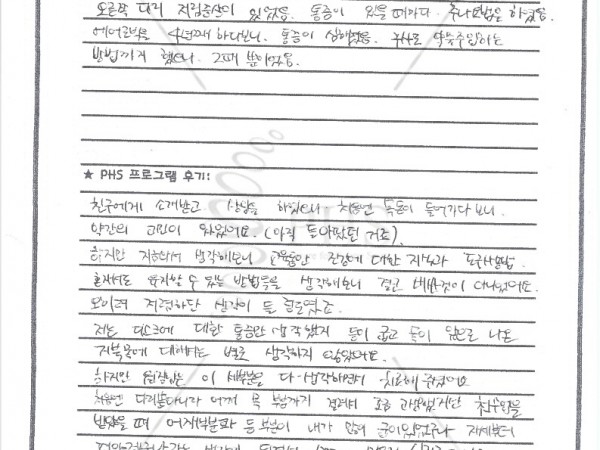 오른쪽 다리 저림증상이 있었음. 통증이 있을 때마다 추나요법을 하였음.
에어로빅을 4년째 하다보니. 통증이 심해졌음. 주사로 약물주입하는
방법까지 했으나. 그때 뿐이었음.
★ PHS 프로그램 후기:
친구에게 소개받고 상담을 하였으나 처음엔 목돈이 들어가다 보니.
약간의 고민이 있었어요. (아직 돌아봤던 거죠).
하지만 지나와서 생각해보니 교육동안 건강에 대한 지식과 도구사용법.
혼자서도 유지할 수 있는 방법등을 생각해보니 결코 비싼것이 아니였어요.
오히려 저렴하단 생각이 들 정도였죠.
저는 디스크에 대한 통증만 생각했지 등이 굽고 목이 앞으로 나온
거북목에 대해서는 별로 생각하지 않았어요.
하지만 원장님은 이 세부분을 다 생각하면서 치료해 주셨어요
처음엔 다리뿐아니라 어깨 목 부분까지 결려서 조금 과상했지만
받았을 때 어깨부분과 등부분이 내가 많이 굳어있었구나